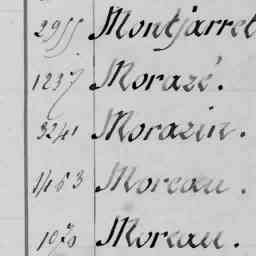 2955 Montjarret
1237 Morazé.
3241 Morazin.
1183 Moreau.
1070 Moreau.